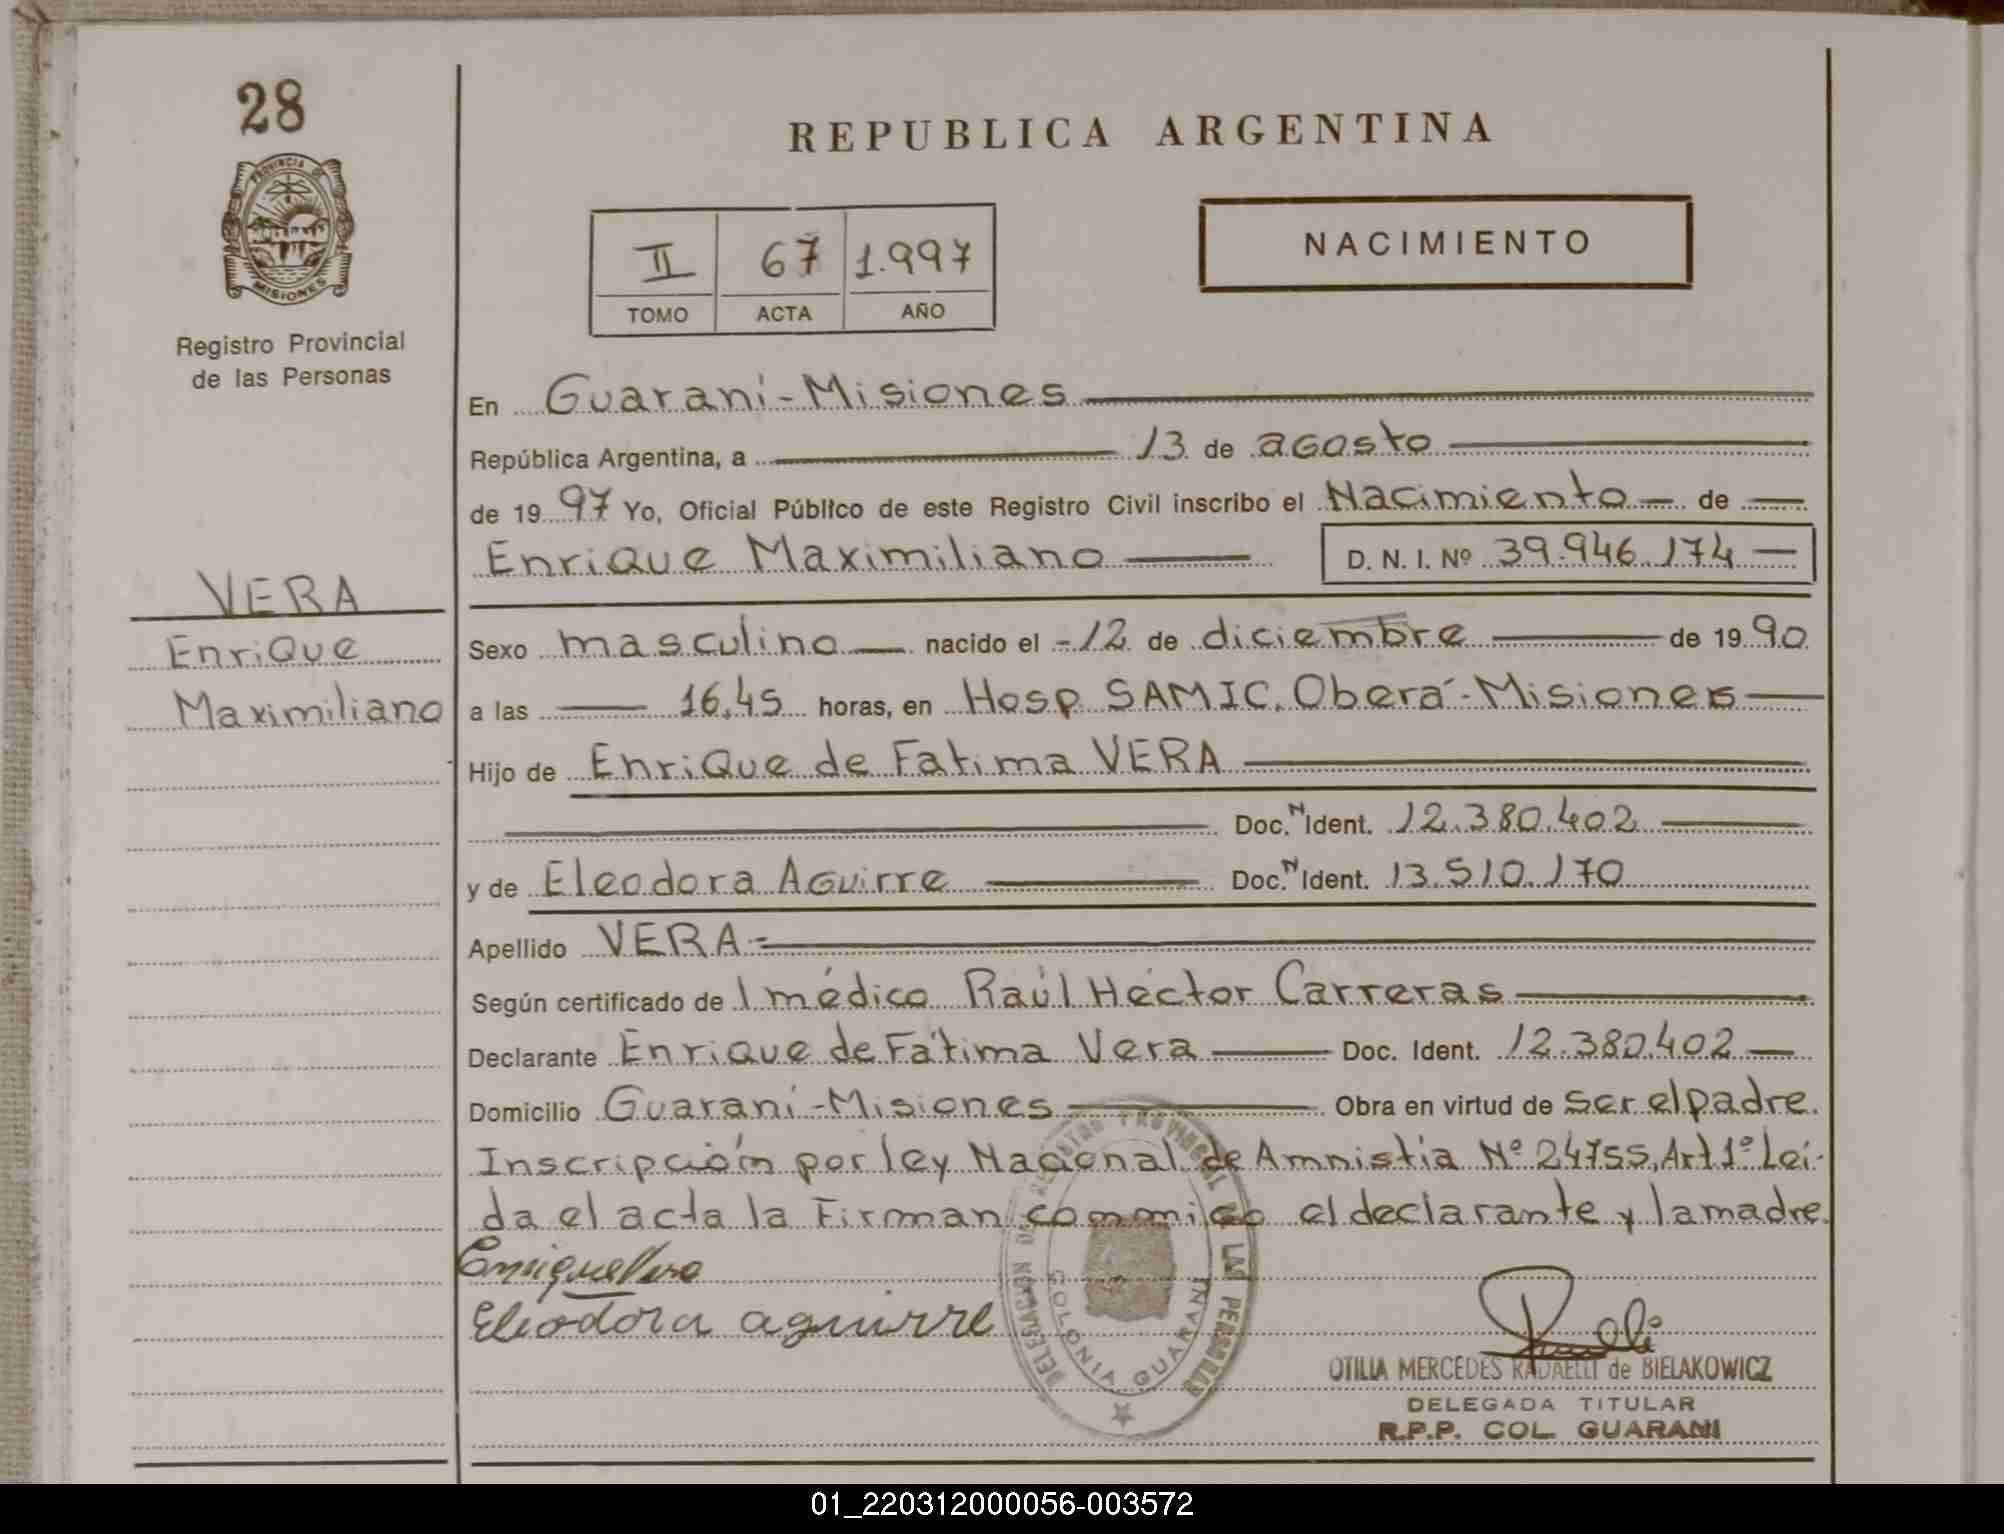 28
PROVINCIA DE
MISIONES
Registro Provincial
de las Personas
VERA
Enrique
Maximiliano
REPUBLICA ARGENTINA
II 67 1.997
TOMO ACTA AÑO
NACIMIENTO
En Guaraní-Misiones
República Argentina, a 13 de agosto
de 1997 Yo, Oficial Público de este Registro Civil inscribo el Nacimiento de
Enrique Maximiliano D. N. I. Nº 39.946.174
Sexo masculino nacido el -12 de diciembre de 1990
a las 16,45 horas, en Hosp. SAMIC. Oberá-Misiones
Hijo de Enrique de Fatima VERA
Doc. N Ident. 12.380.402
y de Eleodora Aguirre Doc. N Ident. 13.510.170
Apellido VERA=
Según certificado de l médico Raúl Héctor Carreras
Declarante Enrique de Fátima Vera Doc. Ident. 12.380.402
Domicilio Guaraní-Misiones Obra en virtud de ser el padre.
Inscripción por ley Nacional de Amnistía Nº 24755, Art 1º Leí-
da el acta la Firman conmigo el declarante y la madre.
Enrique Vera
Eleodora aguirre
DELEGACION DE REGISTRO PROVINCIAL DE LAS PERSONAS
COLONIA GUARANI
OTILIA MERCEDES RADAELLI de BIELAKOWICZ
DELEGADA TITULAR
R.P.P. COL. GUARANI
01_220312000056-003572